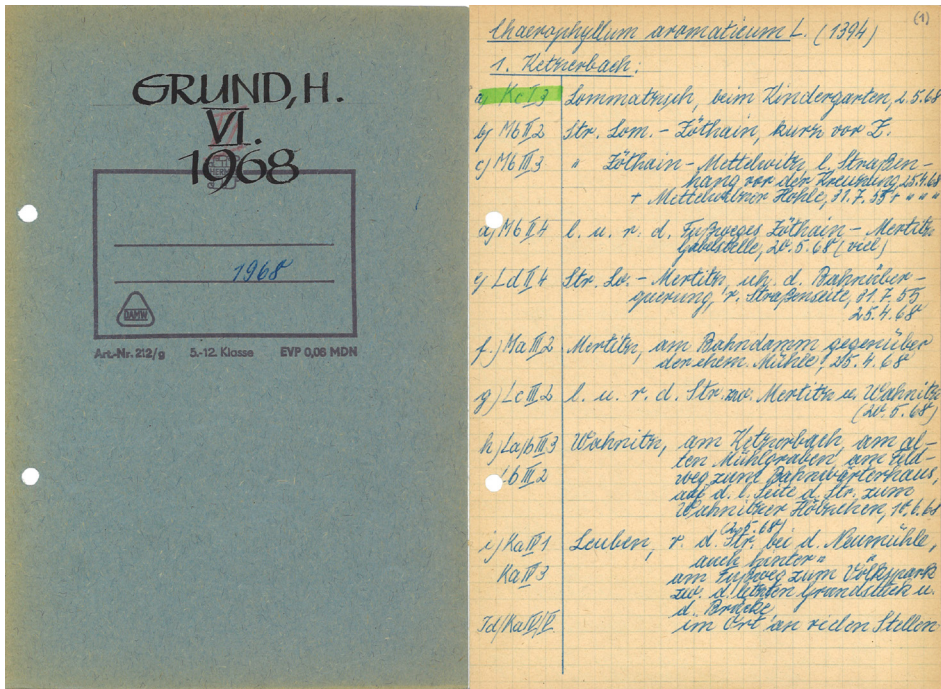 GRUND, H.
VI.
1968
1968
DAMW
Art.-Nr. 212/g 5.-12. Klasse EVP 0,06 MDN
(1)
Chaerophyllum aromaticum L. (1394)
1. Ketzerbach:
a) Kc I 3 Lommatzsch, beim Kindergarten, 2.5.68
b) Mb II 2 Str. Lom. - Zöthain, kurz vor Z.
c) Mb III 3 " Zöthain - Mettelwitz l. Straßen-
hang vor der Kreuzung 25.4.68
+ Mettelwitzer Hohle, 31.7.55 + " " "
d) Mb II 4 l. u. r. d. Fußweges Zöthain - Mertitz
Gabelstelle, 20.5.68 (viel)
e) Ld II 4 Str. Lo. - Mertitz, uh. d. Bahnüber-
querung, r. Straßenseite, 31.7.55
25.4.68
f.) Ma III 2 Mertitz, am Bahndamm gegenüber
der ehem. Mühle, 25.4.68
g) Lc III 2 l. u. r. d. Str. zw. Mertitz u. Wahnitz
(20.5.68)
h) La/b III 3 Wahnitz, am Ketzerbach, am al-
ten Mühlgraben, am Feld-
Lb III 2 weg zum Bahnwärterhaus,
auf d. l. Seite d. Str. zum
Wahnitzer Hölzchen, 10.6.68
(20.5.68)
i) Ka IV 1 Leuben, r. d. Str. bei d. Neumühle,
auch hinter " "
Ka III 3 am Fußweg zum Volkspark
zw. d. letzten Grundstück u.
d. Brücke
Id/Ka IV/V im Ort an vielen Stellen